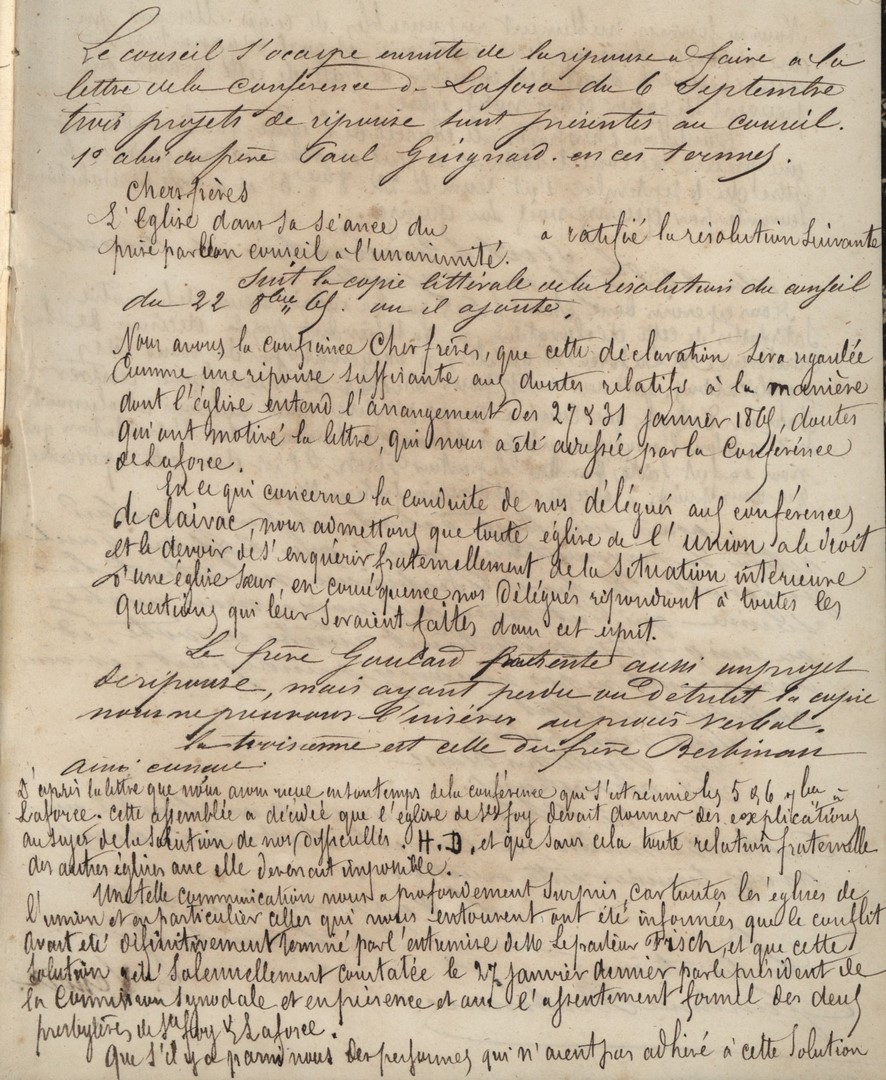 Le conseil s'occupe ensuite de la réponse a faire a la
lettre de la conférence d. Laforce du 6 Septembre
trois projets de réponse sont présentés au conseil.
1° celui du frère Paul Guignard. en ces termes.
Chers frères
L'Eglise dans sa séance du a ratifié la résolution suivante
prise par son conseil à l'unanimité.
Suit la copie littérale de la résolution du conseil
du 22 8bre 65. ou il ajoute.
Nous avons la confiance Cher frères, que cette déclaration sera regardée
Comme une réponse suffisante aux doutes relatifs à la manière
dont l'église entend l'arrangement des 27 & 31 janvier 1865, doutes
qui ont motivé la lettre, qui nous a été adressée par la Conférence
de Laforce.
En ce qui concerne la conduite de nos délégués aux conférences
de clairac, nous admettons que toute église de l'union a le droit
et le devoir de s'enquérir fraternellement de la situation intérieure
d'une église sœur, en conséquence nos délégués répondront à toutes les
questions qui leur seraient faites dans cet esprit.
Le frère Goulard présente aussi un projet
de réponse, mais ayant perdu ou détruit la copie
nous ne pouvons l'insérer au procès verbal.
la troisième est celle du frère
ainsi conçue.
D'après la lettre que nous avons reçue en son temps de la conférence qui s'est réunie les 5 & 6 7bre à
Laforce. cette assemblée a décidée que l'église de Ste foy devait donner des explications
au sujet de la solution de nos difficultés. H.D. et que sans cela toute relation fraternelle
des autres églises avec elle devenait impossible.
Une telle communication nous a profondement surpris, car toutes les églises de
l'union et en particulier celles qui nous entourent ont été informées que le conflit
avait été définitivement terminé par l'entremise de Mr Le pasteur Frisch, et que cette
solution a été solennellement constatée le 27 janvier dernier par le président de
la Commission synodale et en présence et avec l'assentiment formel des deux
presbytères de Ste foy & Laforce.
Que s'il y a parmi nous des personnes qui n'aient pas adhéré à cette solution